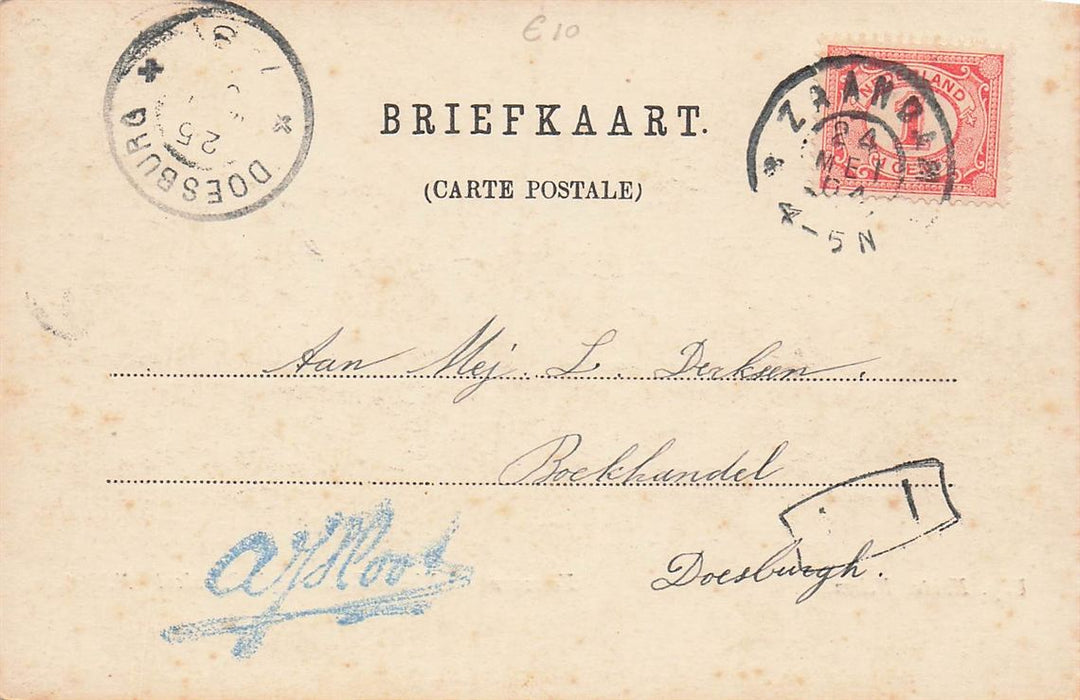 €10
BRIEFKAART.
(CARTE POSTALE)
DOESBURG
25
NEDERLAND
1
CENT
ZAAND
24
MEI
4-5N
Aan Mej. L. Derksen.
Boekhandel
Doesburgh.
1